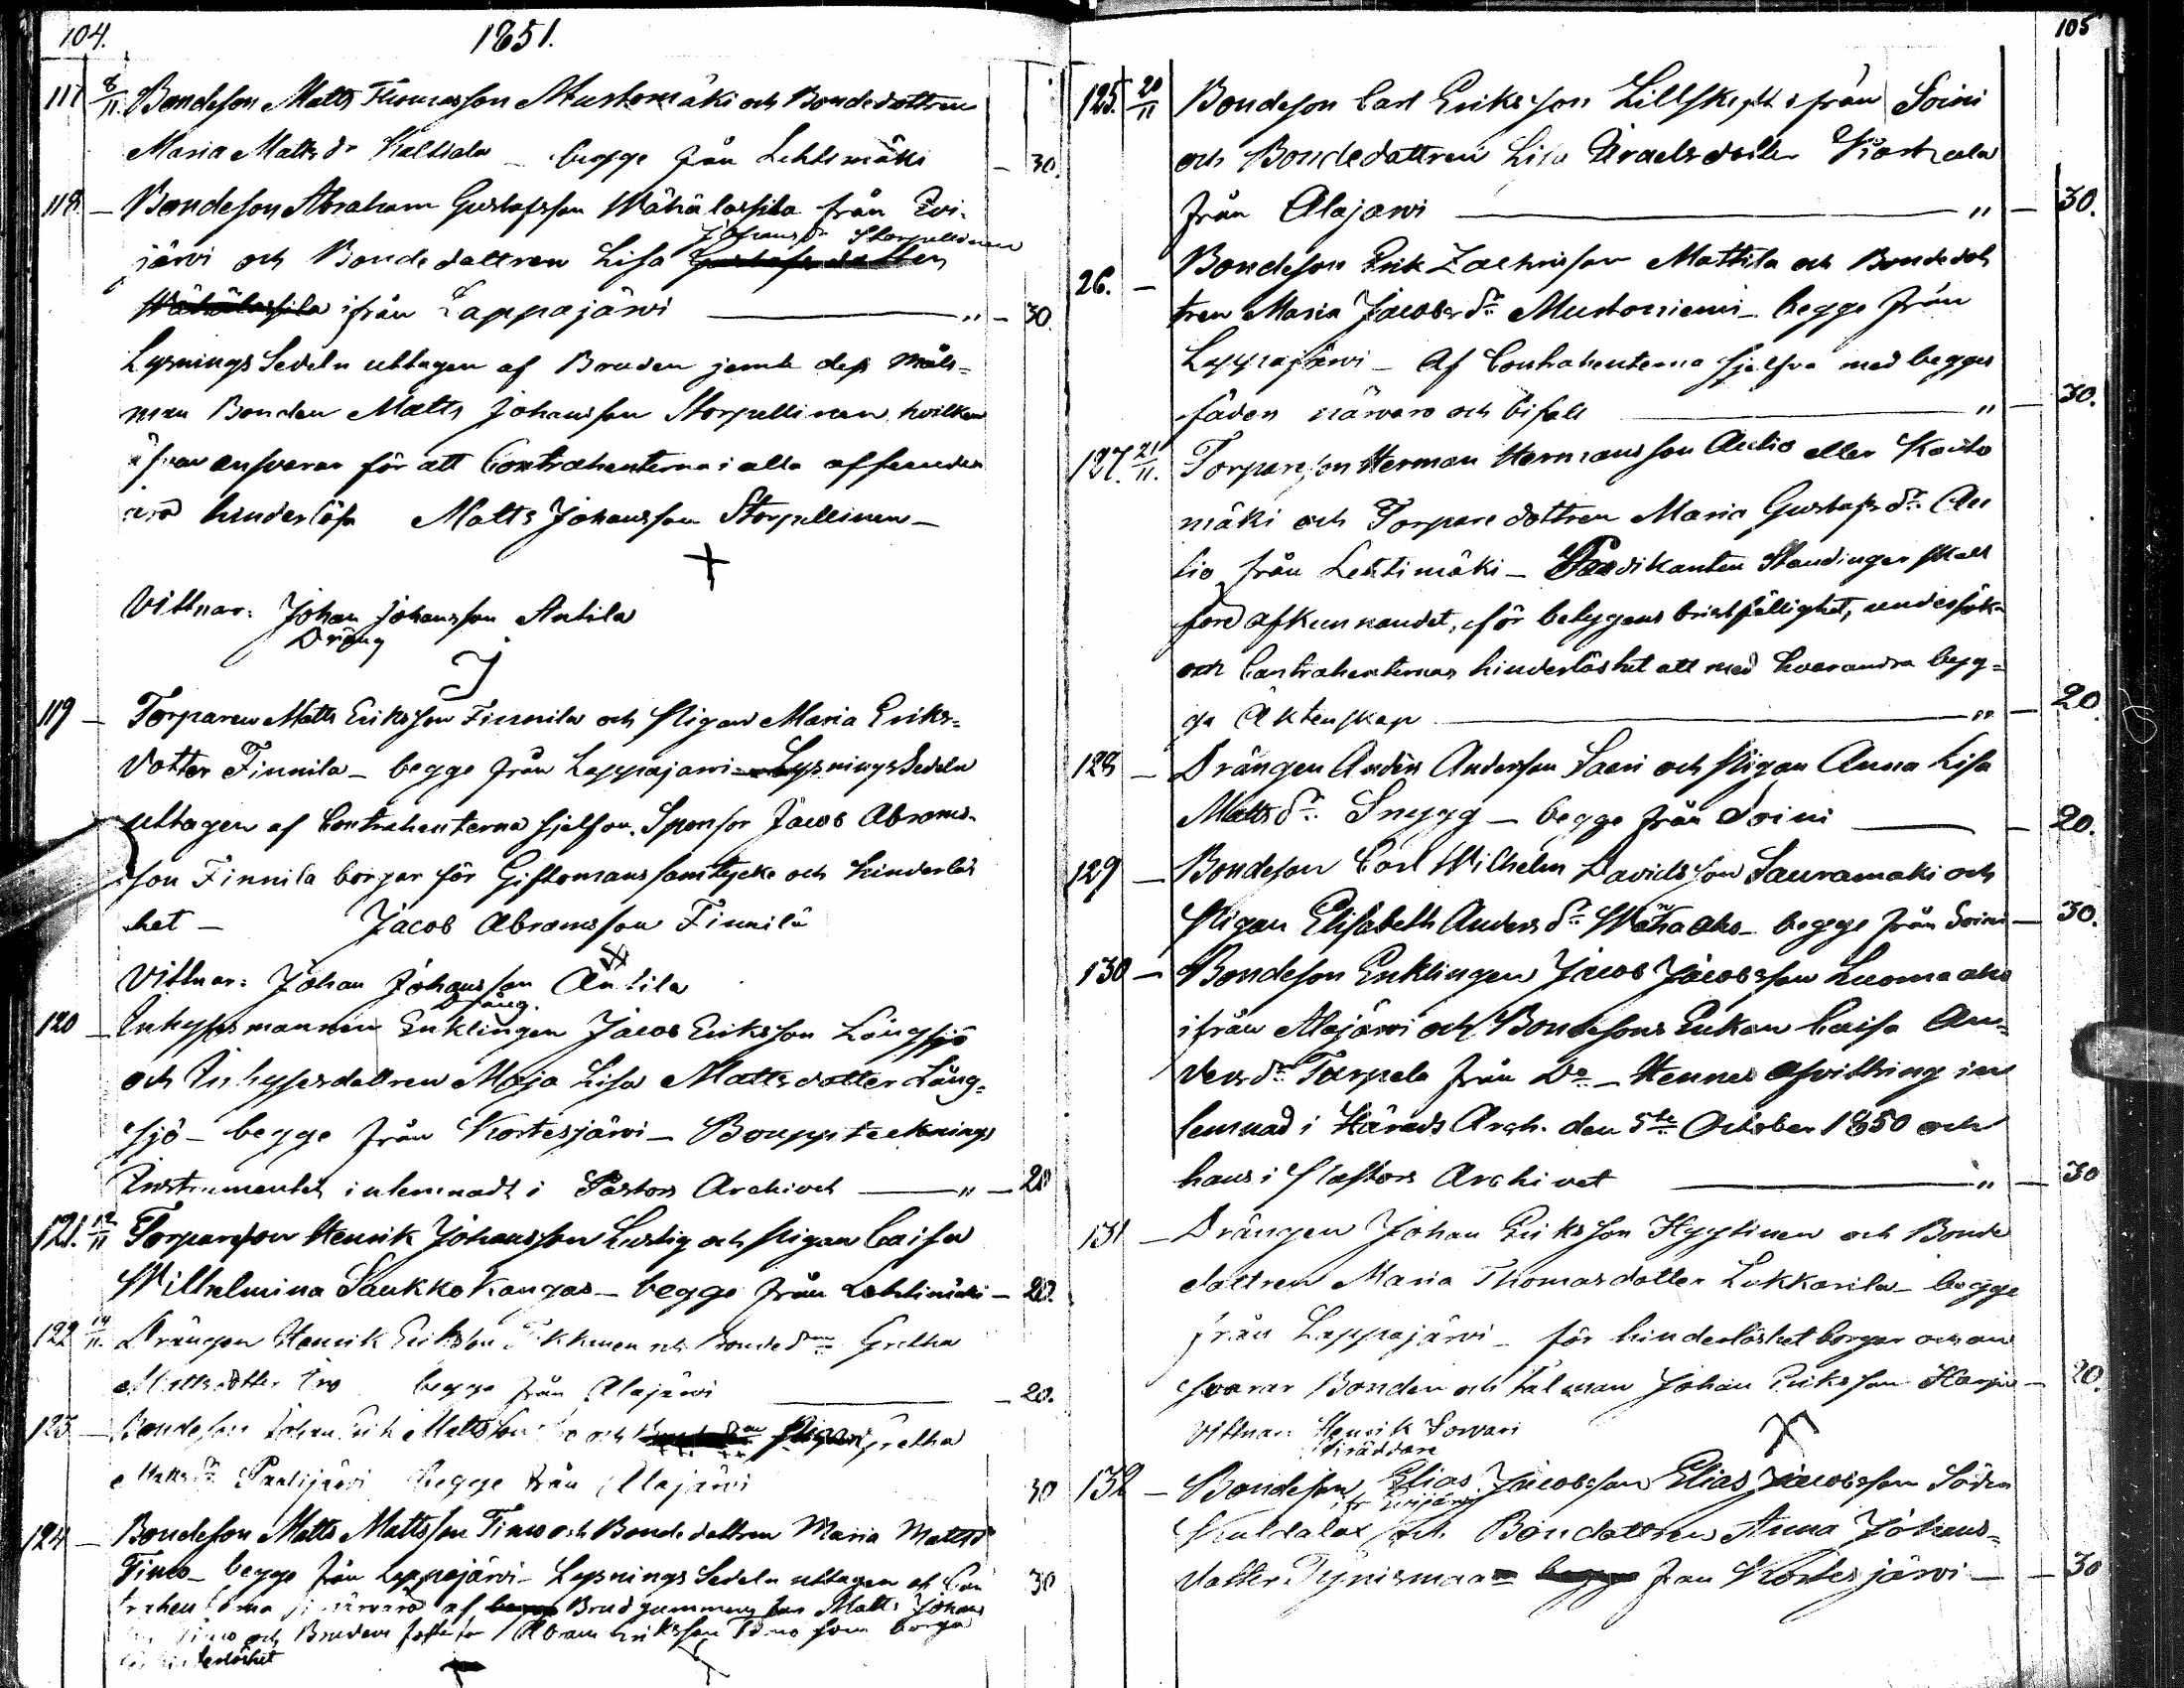 104.
1851.
117 8/11. Bondeson Matts Thomasson Mustomäki och Bondedottren
Maria Matts dr Kaltiala _ begge från Lehtimäki – 30.
118. – Bondeson Abraham Gustafsson Wähälassila från Evi-
Johans dr Storpellinen
järvi och Bondedottren Lisa Gustafsdotter
Wähälassila ifrån Lappajärvi — „ – 30.
Lysnings Sedeln uttagen af Bruden jemte dess Måls-
man Bonden Matts Johansson Storpellinen, hvilken
ansvarar för att Contrahenterna i alla afseenden
äro hinderlösa Matts Johansson Storpellinen –
Vittnar: Johan Johansson Antila
Dräng
119 – Torparen Matts Eriksson Finnila och Pigan Maria Eriks-
dotter Finnila – begge från Lappajärvi – Lysnings Sedeln
uttagen af Contrahenterna sjelfva. Sponsor Jacob Abrams-
son Finnila borgar för Giftomans samtycke och hinderlös
het – Jacob Abramsson Finnilä
Vittnar: Johan Johansson Antila
Dräng.
120 – Inhysesmannen Enklingen Jacob Eriksson Långsjö
och Inhysesdottren Maja Lisa Mattsdotter Lång-
sjö – begge från Kortesjärvi – Bouppteknings
Instrumentet inlemnadt i Pastors Archivet — „ – 20
121. 12/11 Torpareson Henrik Johansson Lustig och Pigan Caisa
Wilhelmina Saukkokangas – begge från Lehtimäki – 20.
122 14/11. Drängen Henrik Eriksson och Bonde dr Gretha
Mattsdotter begge från Alajärvi – 20.
123 – Bondeson Johan Erik Mattsson och Pigan Gretha
Matts dr Paalijärvi begge från Alajärvi 30
124 – Bondeson Matts Mattsson Timo och Bondedottren Maria Matts dr
Timo – begge från Lappajärvi – Lysnings Sedeln uttagen af Con
trahenterna i närvaro af Brudgummens far Matts Johans 30
Timo och Brudens Abram Eriksson Timo som borgar
hinderlöshet
105
125. 20/11 Bondeson Carl Eriksson från Soini
och Bondedottren Lisa Israelsdotter
från Alajärvi — „ – 30.
26. – Bondeson Erik Zachrisson Mattila och Bondedot
tren Maria Jacobs dr Mustoniemi – begge från
Lappajärvi – Af Contrahenterna sjelfva med begges
fäders närvaro och bifall — „ – 30.
127. 21/11. Torpareson Herman Hermansson Aulio eller Koito
mäki och Torparedottren Maria Gustafs dr Au
lio från Lehtimäki – Predikanten Standinger skall
före afkunnandet, för betygens bristfällighet, undersöka
och Contrahenternas hinderlöshet att med hvarandra byg-
ga Äktenskap — „ – 20.
128 – Drängen Anders Andersson Saari och Pigan Anna Lisa
Matts dr Snygg – begge från Soini — – 20.
129 – Bondeson Carl Wilhelm Davidsson Sauramäki och
Pigan Elisabeth Anders dr Wähäaho – begge från Soini – 30.
130 – Bondeson Enklingen Jacob Jacobsson Luomaaho
ifrån Alajärvi och Bondesons Enkan Caisa An-
ders dr Tarpela från Do – Hennes afvittring in
lemnad i Härads Arch. den 5te October 1850 och
hans i Pastors Archivet — „ – 30
131 – Drängen Johan Eriksson Hyytinen och Bonde
dottren Maria Thomasdotter Lukkarila – begge
från Lappajärvi – för hinderlöshet borgar och an
svarar Bonden och talman Johan Eriksson Harju – 20.
Vittnar Henrik Sorvari
Skräddare
132 – Bondeson Elias Jacobsson Elias Jacobsson Södra
fr Evijärvi
Kaldalax och Bondedottren Anna Johans-
dotter Tynismaa – begge från Kortesjärvi – – 30